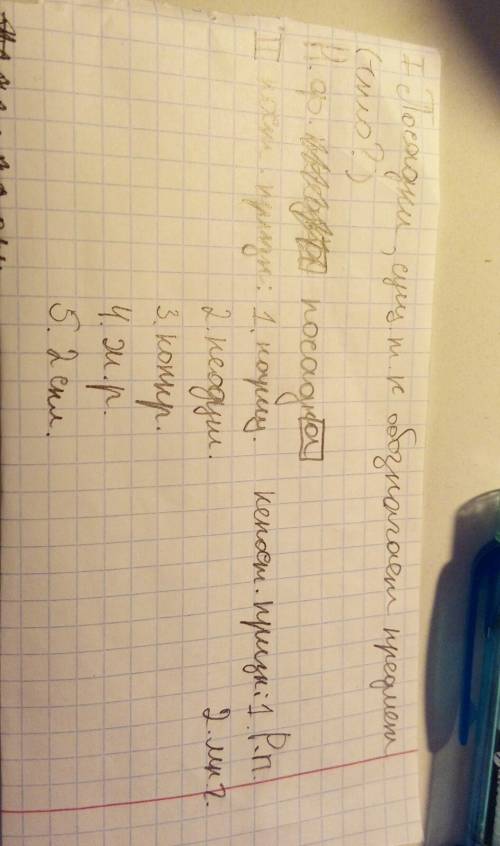 I Посадки, сущ, т. к обозначает предмет
(что?)
Н.ф. посадка
II пост. призн: 1. нариц. непост. призн: 1. Р.п.
2. неодуш. 2. мн ч.
3. конкр.
4. ж. р.
5. 2 скл.